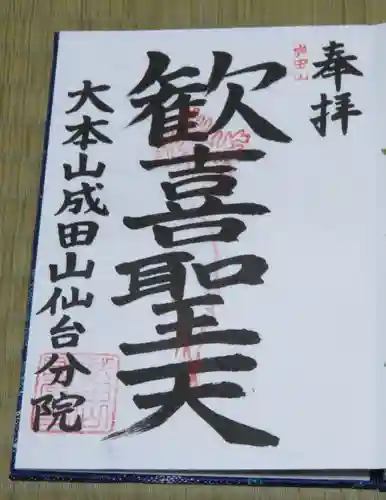 奉拝
成田山
歓喜聖天
大本山成田山仙台分院